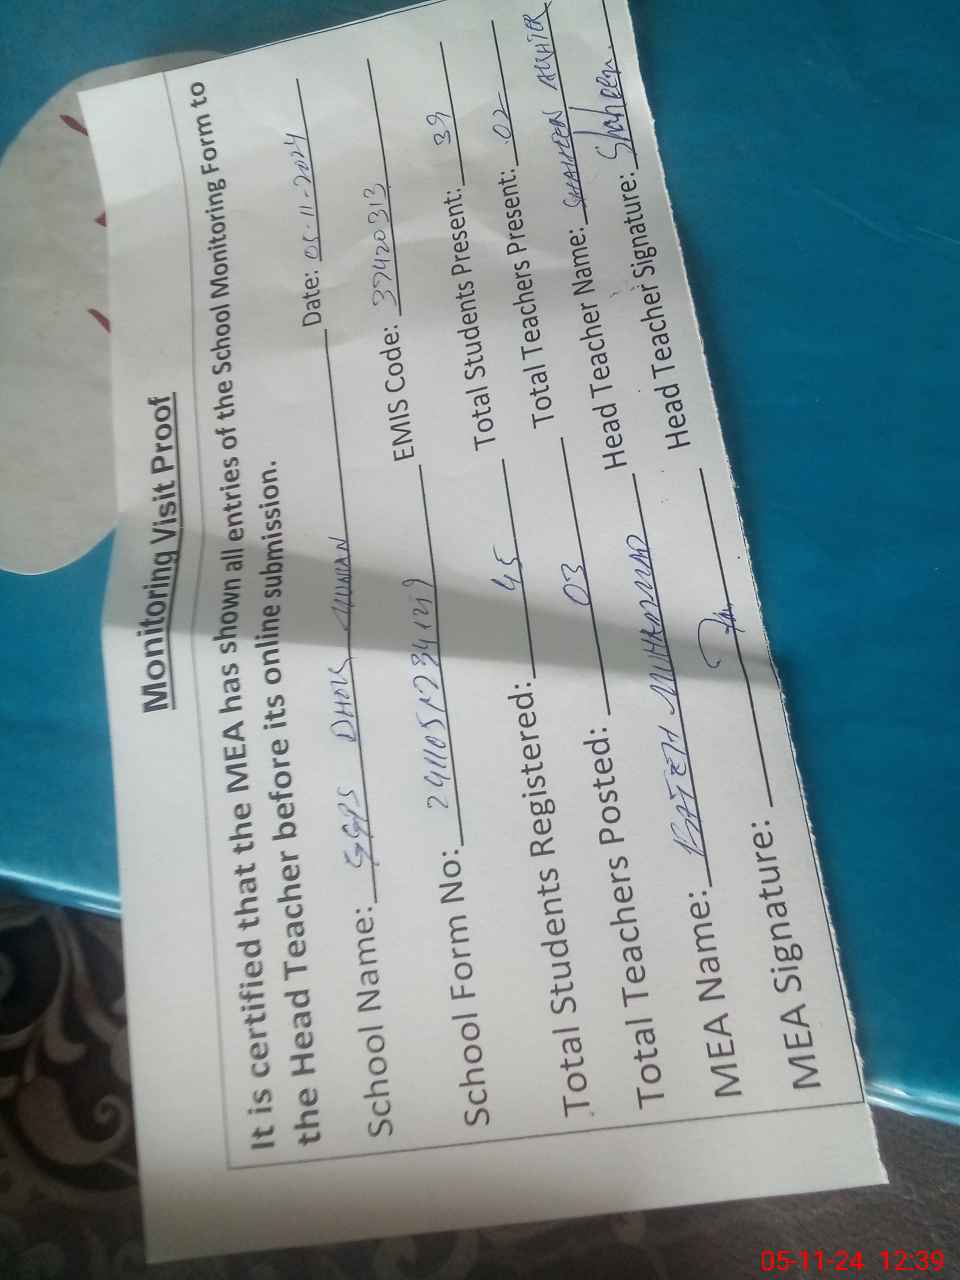 Monitoring Visit Proof
It is certified that the MEA has shown all entries of the School Monitoring Form to
the Head Teacher before its online submission.
School Name: GGPS DHOK Date: 05-11-2024
School Form No: EMIS Code: 37420313
Total Students Registered: 45 Total Students Present: 39
Total Teachers Posted: 03 Total Teachers Present: 02
MEA Name: MUHAMMAD Head Teacher Name: SHAHEEN AKHTER
MEA Signature: Head Teacher Signature: Shaheen
05-11-24 12:39